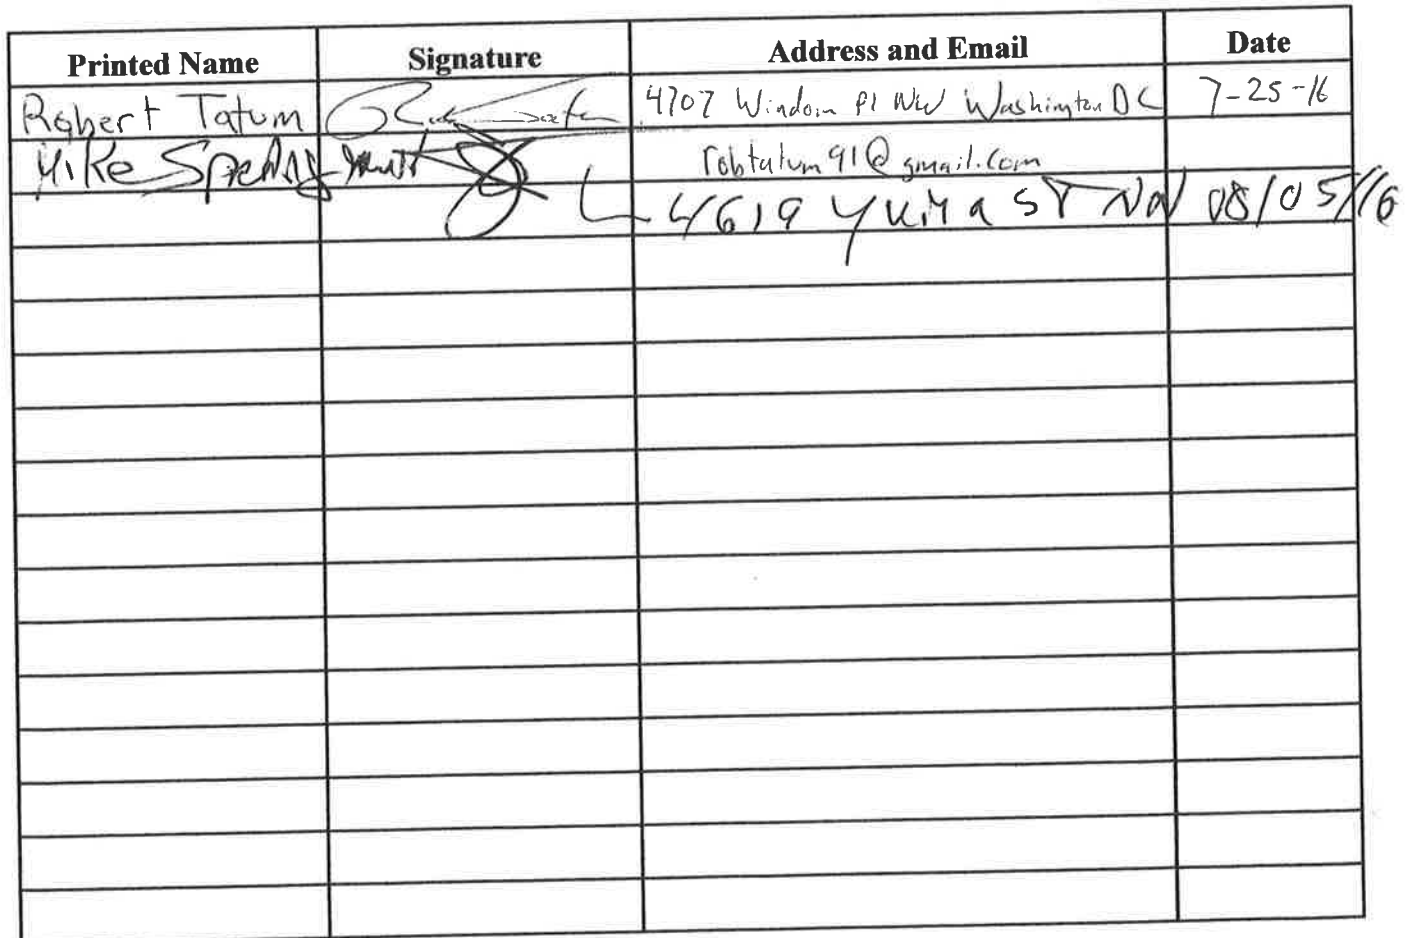 Printed Name Signature Address and Email Date
Robert Tatum 4707 Windom Pl NW Washington DC 7-25-16
robtatum91@gmail.com
Mike
4619 Yuma ST NW 08/05/16